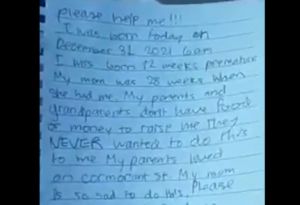 please help me!!!
I was born today on
December 31 2021 6am
I was born 12 weeks premature
My mom was 28 weeks when
she had me. My parents and
grandparents dont have food
or money to raise me They
NEVER wanted to do this
to me My parents lived
on cormorant st. My mom
is so sad to do this. Please